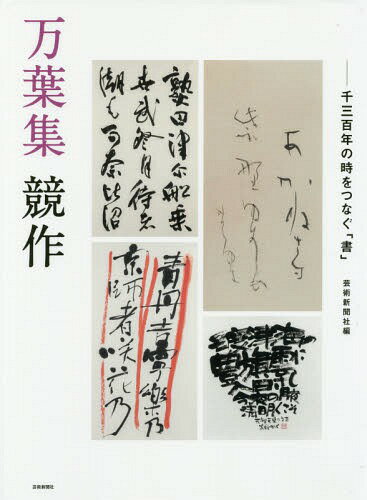 万葉集 競作
千三百年の時をつなぐ「書」
芸術新聞社編
熟田津尓船乗
世武登月待者
潮毛可奈比沼
あかねさす
紫野ゆき
青丹吉寧樂乃
京師者咲花乃
芸術新聞社